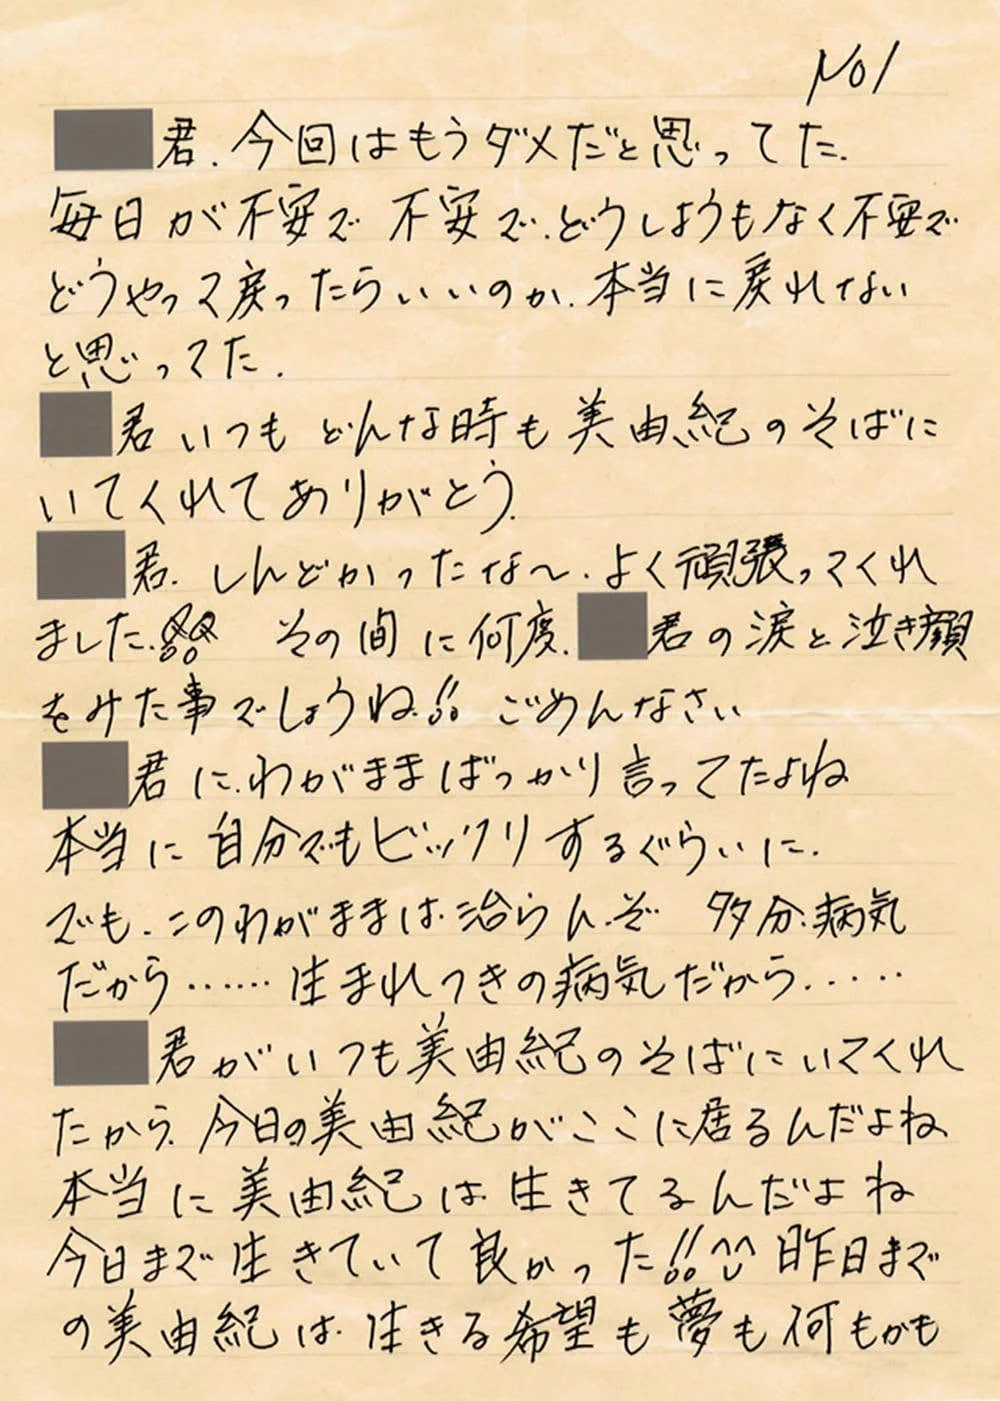 No1
君.今回はもうダメだと思ってた.
毎日が不安で 不安で.どうしようもなく不安で
どうやって戻ったらいいのか.本当に戻れない
と思ってた.
君いつも どんな時も美由紀のそばに
いてくれてありがとう.
君.しんどかったな～.よく頑張ってくれ
ました.!! その間に何度.君の涙と泣き顔
をみた事でしょうね!! ごめんなさい
君に.わがままばっかり言ってたよね
本当に自分でもビックリするぐらいに.
でも.このわがままは.治らん.ぞ 多分.病気
だから……生まれつきの病気だから.....
君がいつも美由紀のそばにいてくれ
たから.今日の美由紀がここに居るんだよね
本当に美由紀は.生きてるんだよね
今日まで生きていて良かった!!^^ 昨日まで
の美由紀は.生きる希望も夢も何もかも